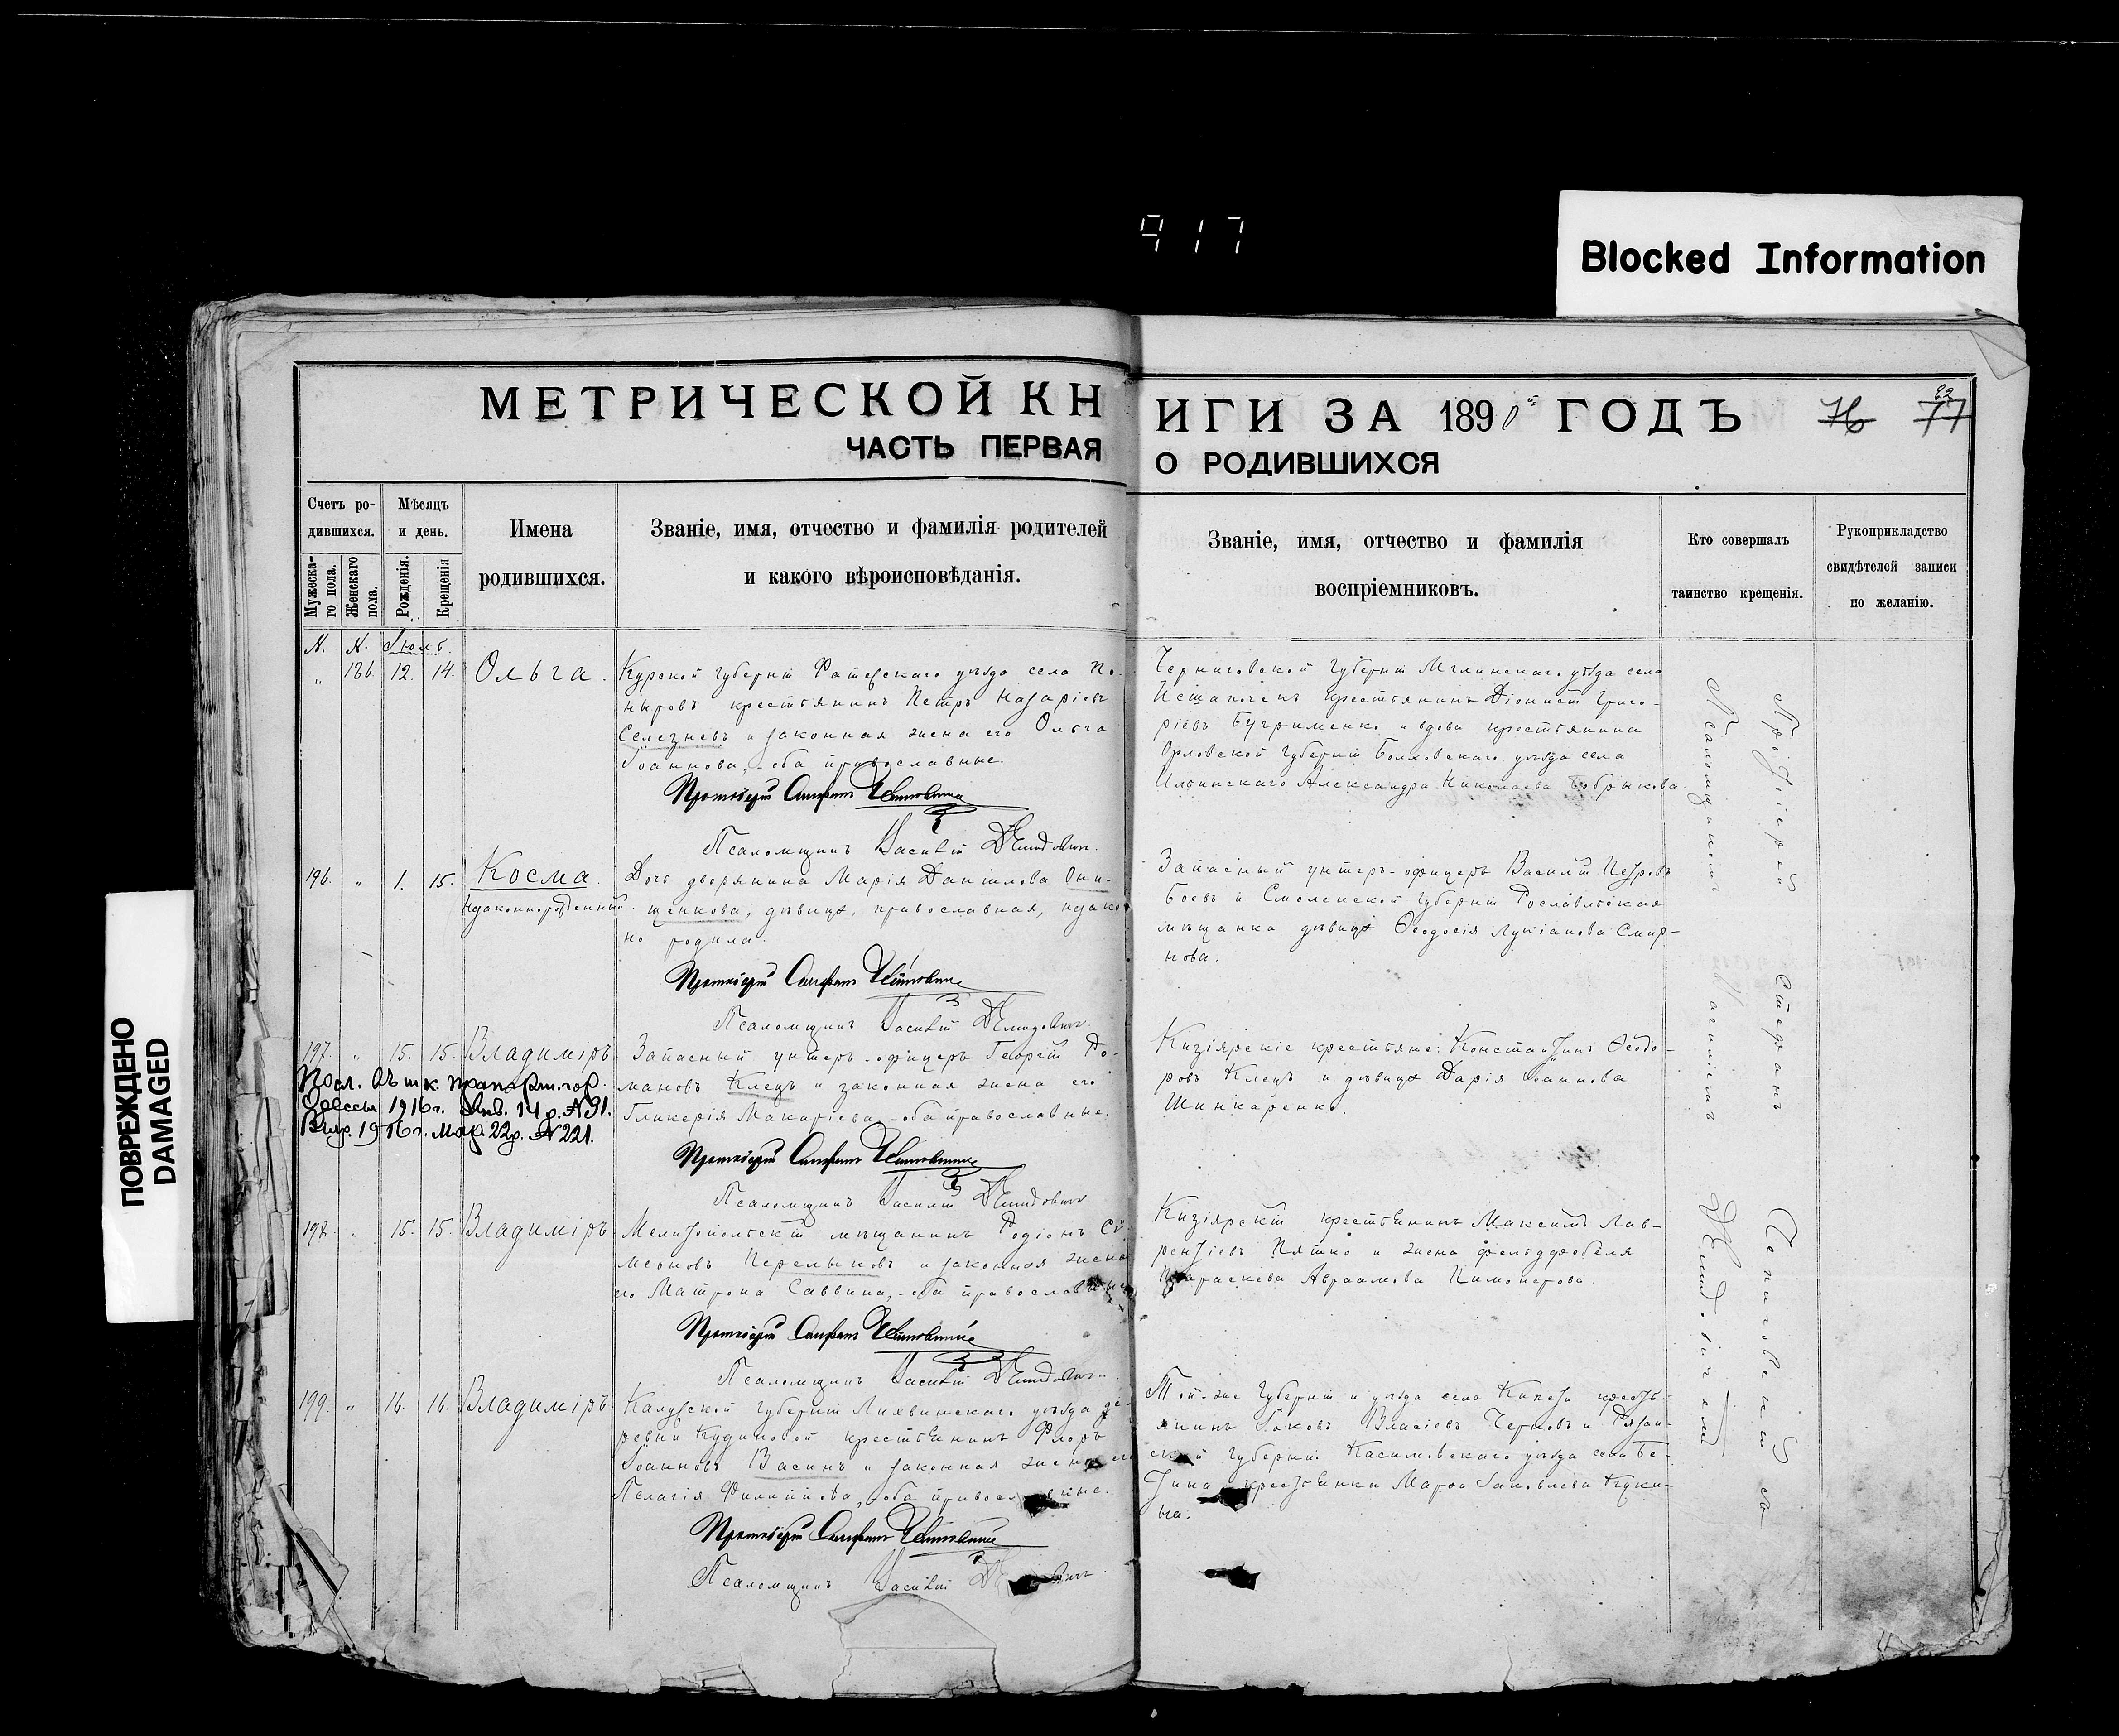 917
Blocked Information
ПОВРЕЖДЕНО
DAMAGED
МЕТРИЧЕСКОЙ КНИГИ ЗА 1890й ГОДЪ
76 77
ЧАСТЬ ПЕРВАЯ О РОДИВШИХСЯ
Счетъ ро-
дившихся.
Мужеска-
го пола.
Женскаго
пола.
Мѣсяцъ
и день.
Рожденія.
Крещенія
Имена
родившихся.
Званіе, имя, отчество и фамилія родителей
и какого вѣроисповѣданія.
Званіе, имя, отчество и фамилія
воспріемниковъ.
Кто совершалъ
таинство крещенія.
Рукоприкладство
свидѣтелей записи
по желанію.
N. N. Іюль.
„ 12. 14. Ольга.
Курской губерніи Фатежскаго уѣзда села По-
ныровъ крестьянинъ Петръ Назаріевъ
Селезневъ и законная жена его Ольга
Іоаннова, - оба православные.
Протоіерей Стефанъ
Псаломщикъ Василій Демидовичъ.
Черниговской губерніи Мглинскаго уѣзда села
крестьянинъ Діонисій Григо-
ріевъ Бугрименко и вдова крестьянина
Орловской губерніи Болховскаго уѣзда села
Ильинскаго Александра Николаева Бобрыкова.
196. „ 1. 15. Косма.
незаконнорожденный.
Дочь дворянина Марія Даніилова Они-
щенкова, дѣвица, православная, незакон-
но родила.
Протоіерей Стефанъ
Псаломщикъ Василій Демидовичъ.
Запасный унтеръ-офицеръ Василій Петровъ
Боевъ и Смоленской губерніи Рославльская
мѣщанка дѣвица Ѳеодосія Лукіанова Смир-
нова.
197. „ 15. 15. Владиміръ
Одессы 1916 г. Янв. 14 д. N 91.
1916 г. Мар. 22 д. N 221.
Запасный унтеръ-офицеръ Георгій Ро-
мановъ Клецъ и законная жена его
Гликерія Макаріева, - оба православные.
Протоіерей Стефанъ
Псаломщикъ Василій Демидовичъ
Кизіярскіе крестьяне: Константинъ Ѳеодо-
ровъ Клецъ и дѣвица Дарія Іоаннова
Шинкаренко.
198. „ 15. 15. Владиміръ
Мелитопольскій мѣщанинъ Родіонъ Си-
меоновъ Перелыковъ и законная жена
его Матрона Саввина, - оба православные
Протоіерей Стефанъ
Псаломщикъ Василій Демидовичъ.
Кизіярскій крестьянинъ Максимъ Лав-
рентіевъ Пятко и жена фельдфебеля
Параскева Авраамова
199. „ 16. 16. Владиміръ
Калужской губерніи Лихвинскаго уѣзда де-
ревни Кудиновой крестьянинъ Флоръ
Іоанновъ Васинъ и законная жена его
Пелагія Филиппова, - оба православные.
Протоіерей Стефанъ
Псаломщикъ Василій
Той-же губерніи и уѣзда села кресть-
янинъ Іаковъ Власіевъ Черновъ и Рязан-
ской губерніи Касимовскаго уѣзда села Бе-
тина крестьянка Марѳа Іаковлева Куки-
на.
Протоіерей Стефанъ
Псаломщикомъ Василіемъ Демидовичемъ